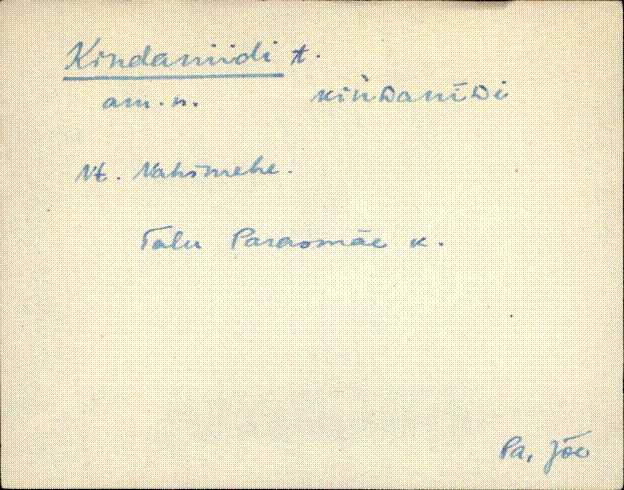 Kindaniidi t.
am. n. kin̆ᴅanīᴅi
Vt. Vahimehe.
Talu Parasmäe k.
Pa, Jõe